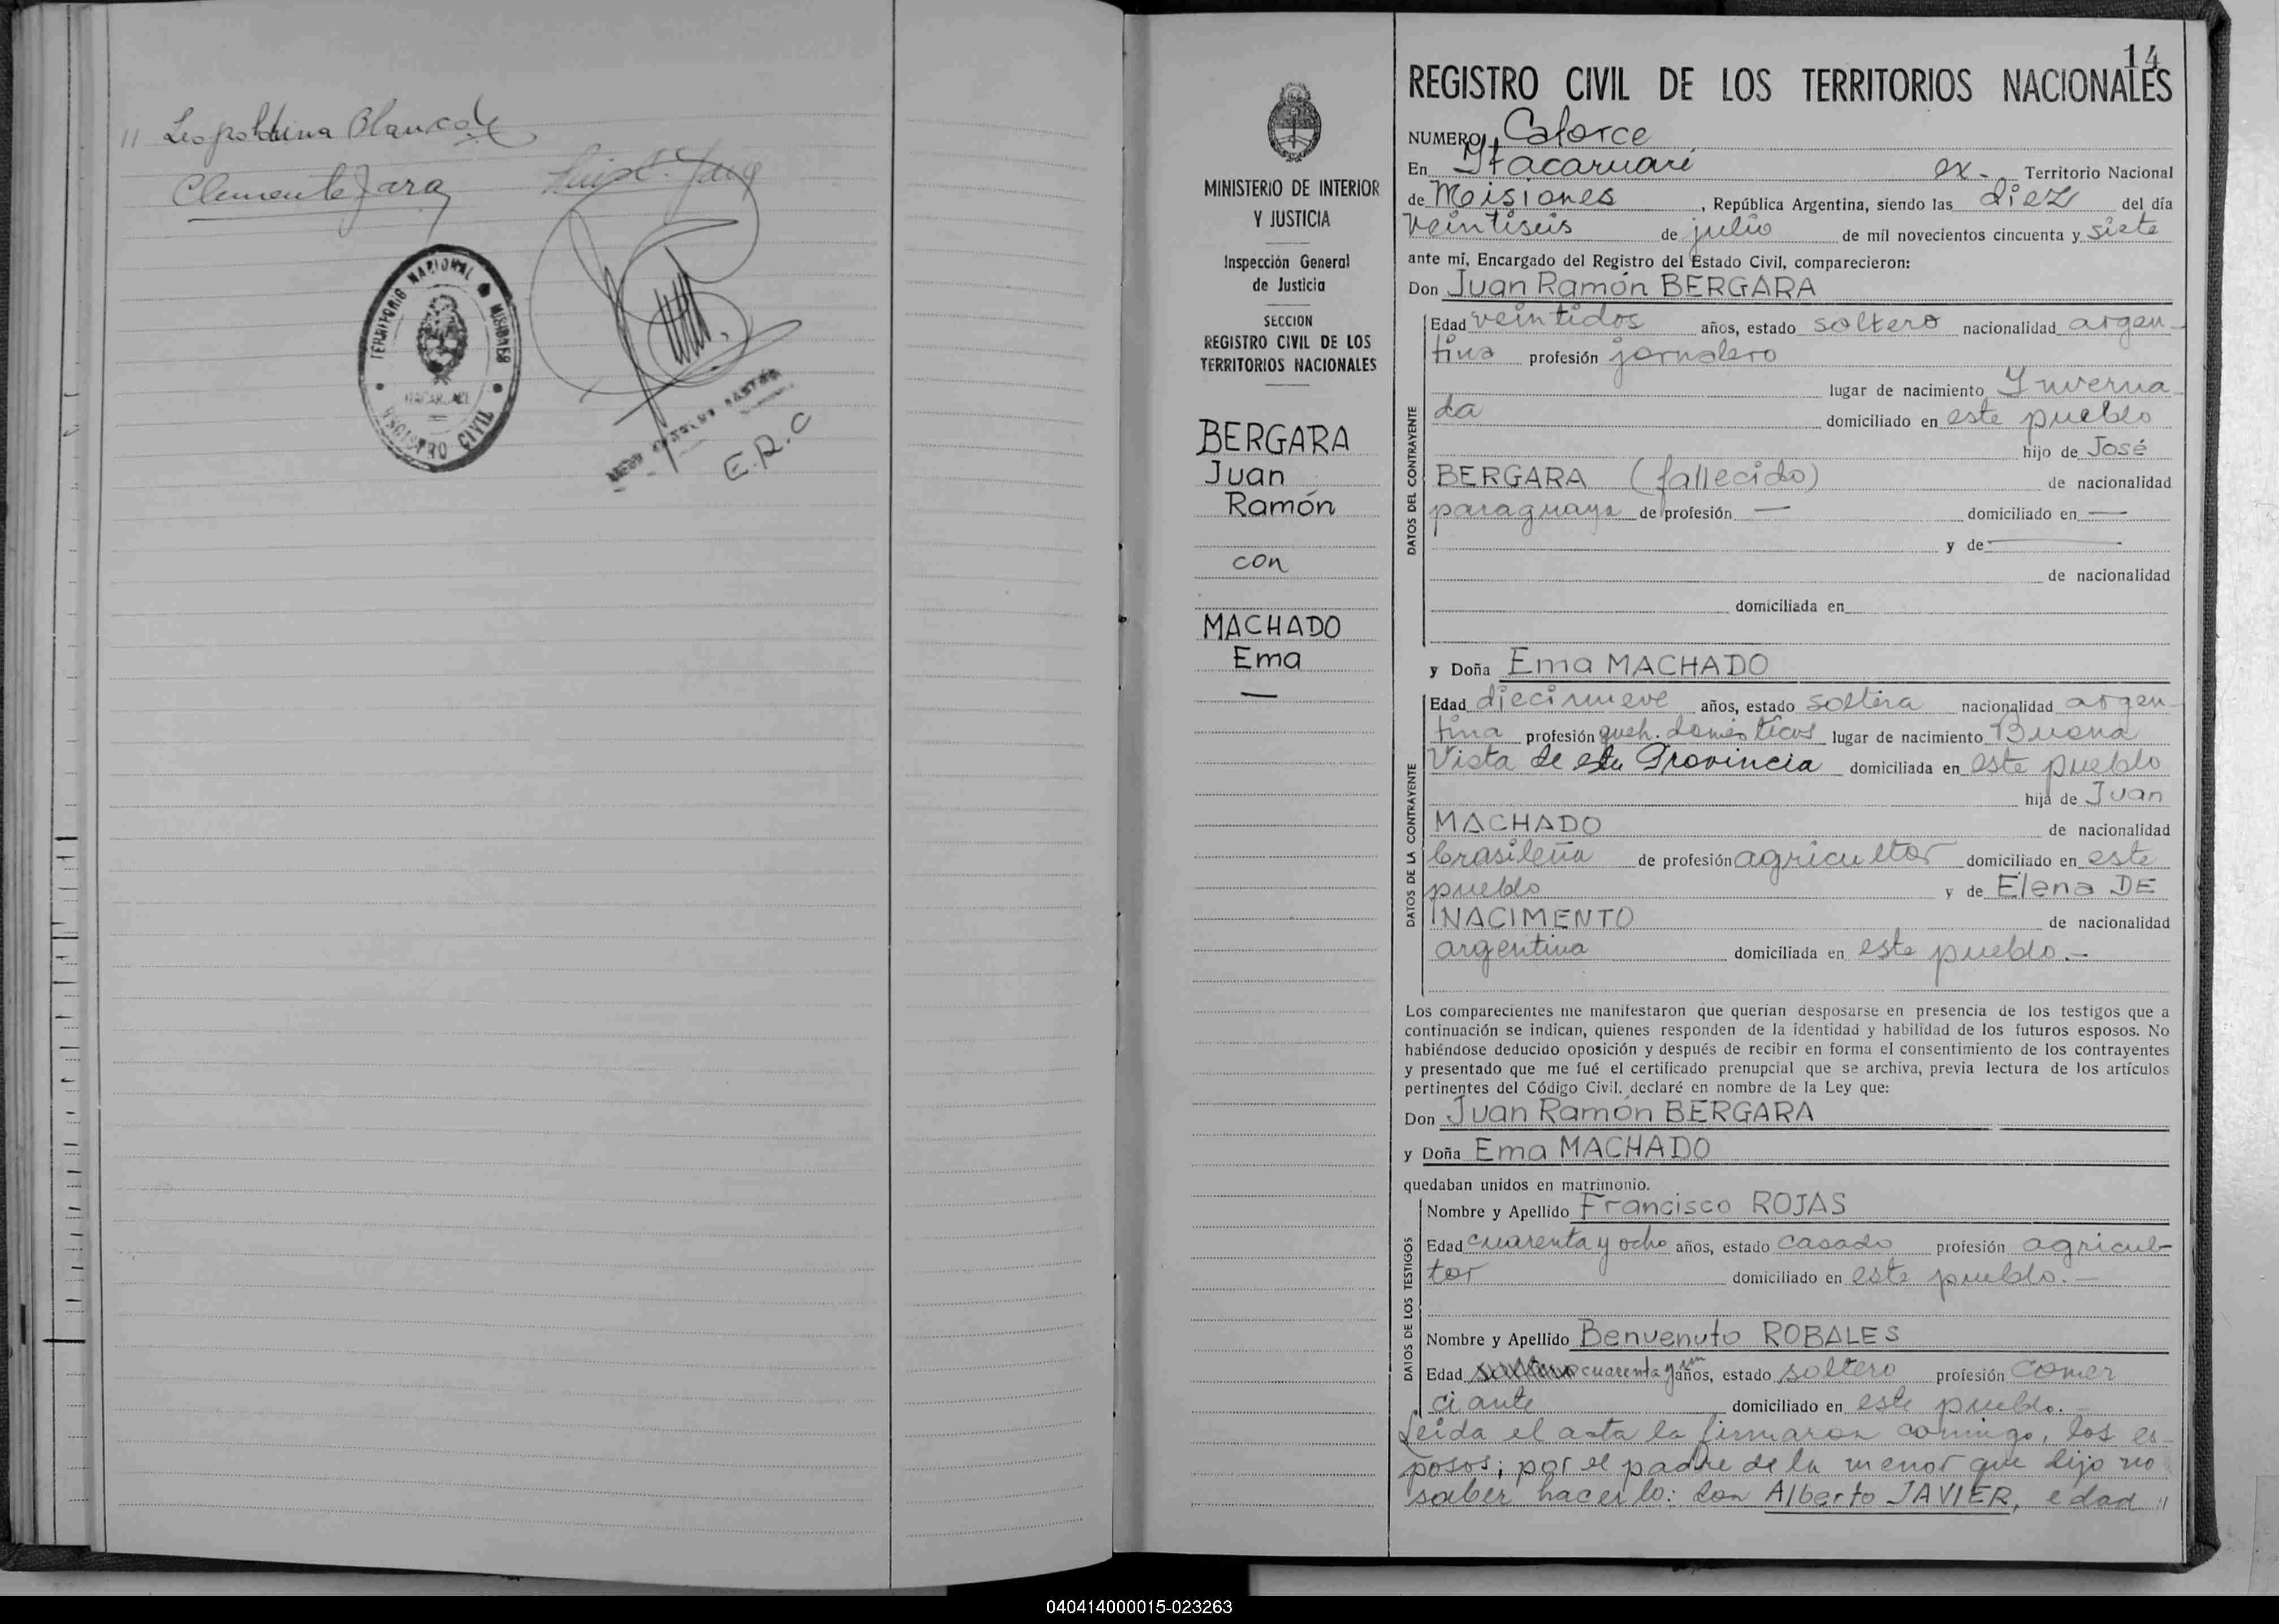 " Leopoldina Blanco de
Clemente Jara
TERRITORIO NACIONAL MISIONES
REGISTRO CIVIL
E.R.C
14
REGISTRO CIVIL DE LOS TERRITORIOS NACIONALES
MINISTERIO DE INTERIOR
Y JUSTICIA
Inspección General
de Justicia
SECCION
REGISTRO CIVIL DE LOS
TERRITORIOS NACIONALES
BERGARA
Juan
Ramón
con
MACHADO
Ema
—
NUMERO Catorce
En Itacaruaré ex- Territorio Nacional
de Misiones, República Argentina, siendo las diez del día
veintiseis de julio de mil novecientos cincuenta y siete
ante mí, Encargado del Registro del Estado Civil, comparecieron:
Don Juan Ramón BERGARA
DATOS DEL CONTRAYENTE
Edad veintidos años, estado soltero nacionalidad argen-
tina profesión jornalero
lugar de nacimiento Inverna-
da domiciliado en este pueblo
hijo de José
BERGARA (fallecido) de nacionalidad
paraguaya de profesión — domiciliado en —
y de —
de nacionalidad
domiciliada en
y Doña Ema MACHADO
DATOS DE LA CONTRAYENTE
Edad diecinueve años, estado soltera nacionalidad argen-
tina profesión queh. domésticos lugar de nacimiento Buena
Vista de esta Provincia domiciliada en este pueblo
hija de Juan
MACHADO de nacionalidad
brasileña de profesión agricultor domiciliado en este
pueblo y de Elena DE
NACIMENTO de nacionalidad
argentina domiciliada en este pueblo.-
Los comparecientes me manifestaron que querían desposarse en presencia de los testigos que a
continuación se indican, quienes responden de la identidad y habilidad de los futuros esposos. No
habiéndose deducido oposición y después de recibir en forma el consentimiento de los contrayentes
y presentado que me fué el certificado prenupcial que se archiva, previa lectura de los artículos
pertinentes del Código Civil, declaré en nombre de la Ley que:
Don Juan Ramón BERGARA
y Doña Ema MACHADO
quedaban unidos en matrimonio.
DATOS DE LOS TESTIGOS
Nombre y Apellido Francisco ROJAS
Edad cuarenta y ocho años, estado casado profesión agricul-
tor domiciliado en este pueblo.-
Nombre y Apellido Benvenuto ROBALES
Edad cuarenta y un años, estado soltero profesión comer
ciante domiciliado en este pueblo.-
Leida el acta la firmaron comigo, los es-
posos; por el padre de la menor que dijo no
saber hacerlo: don Alberto JAVIER, edad "
040414000015-023263